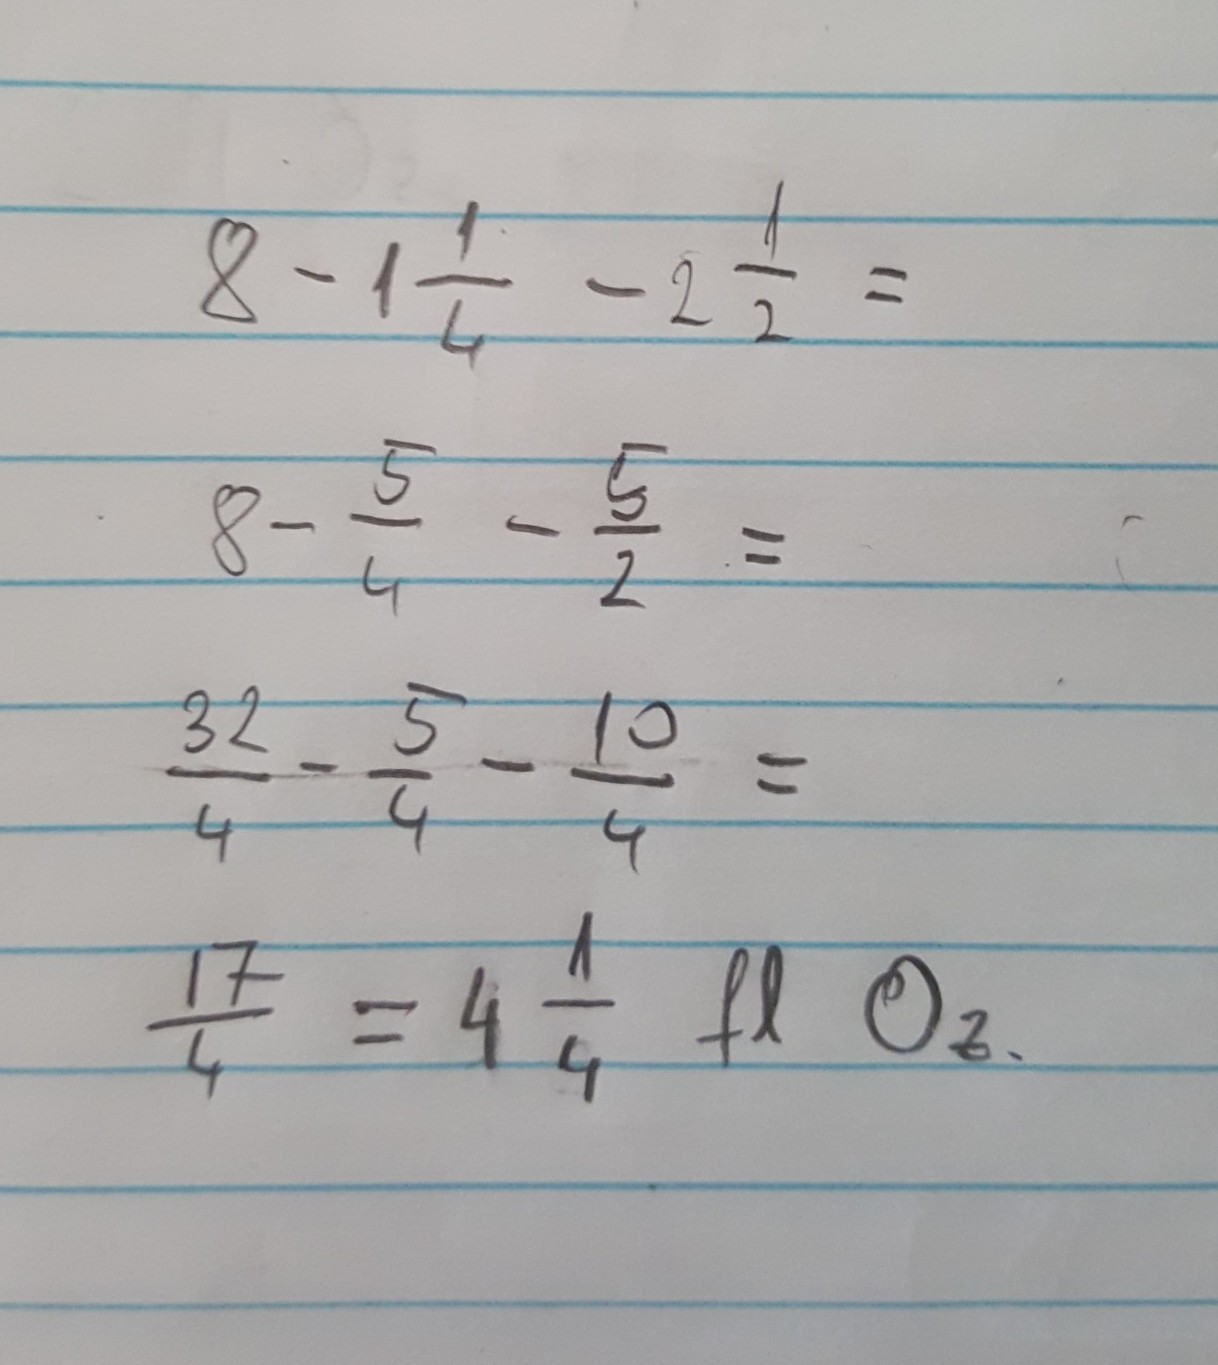 8 - 1 1/4 - 2 1/2 =
8 - 5/4 - 5/2 =
32/4 - 5/4 - 10/4 =
17/4 = 4 1/4 fl Oz.